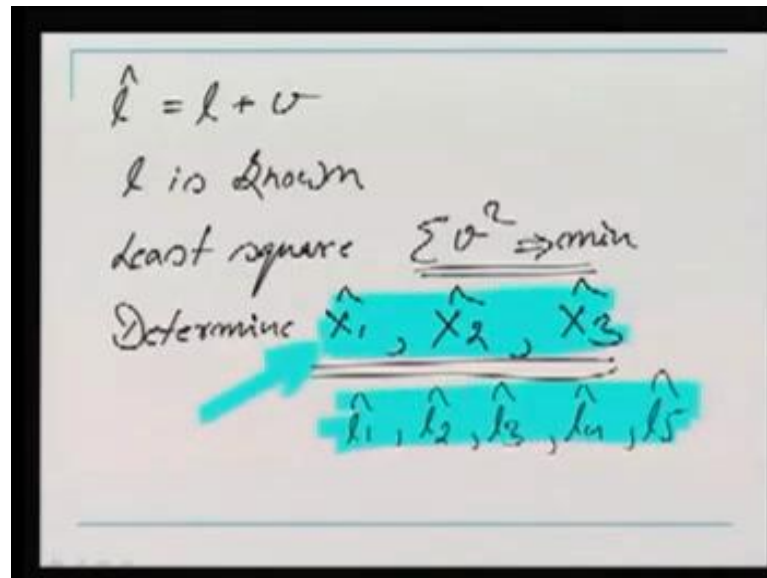 l̂ = l + v
l is known
Least square Σv² ⇒ min
Determine x̂₁, x̂₂, x̂₃
l̂₁, l̂₂, l̂₃, l̂₄, l̂₅